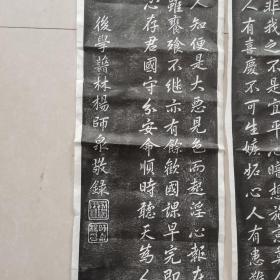 非我之不是且平心暗想施惠
人有喜慶不可生嫉妬心人有患
人知便是大惡見色而起淫心報在
雖饔飧不繼亦有餘歡國課早完即
心存君國守分安命順時聽天為人
後學醫林楊師泉敬錄